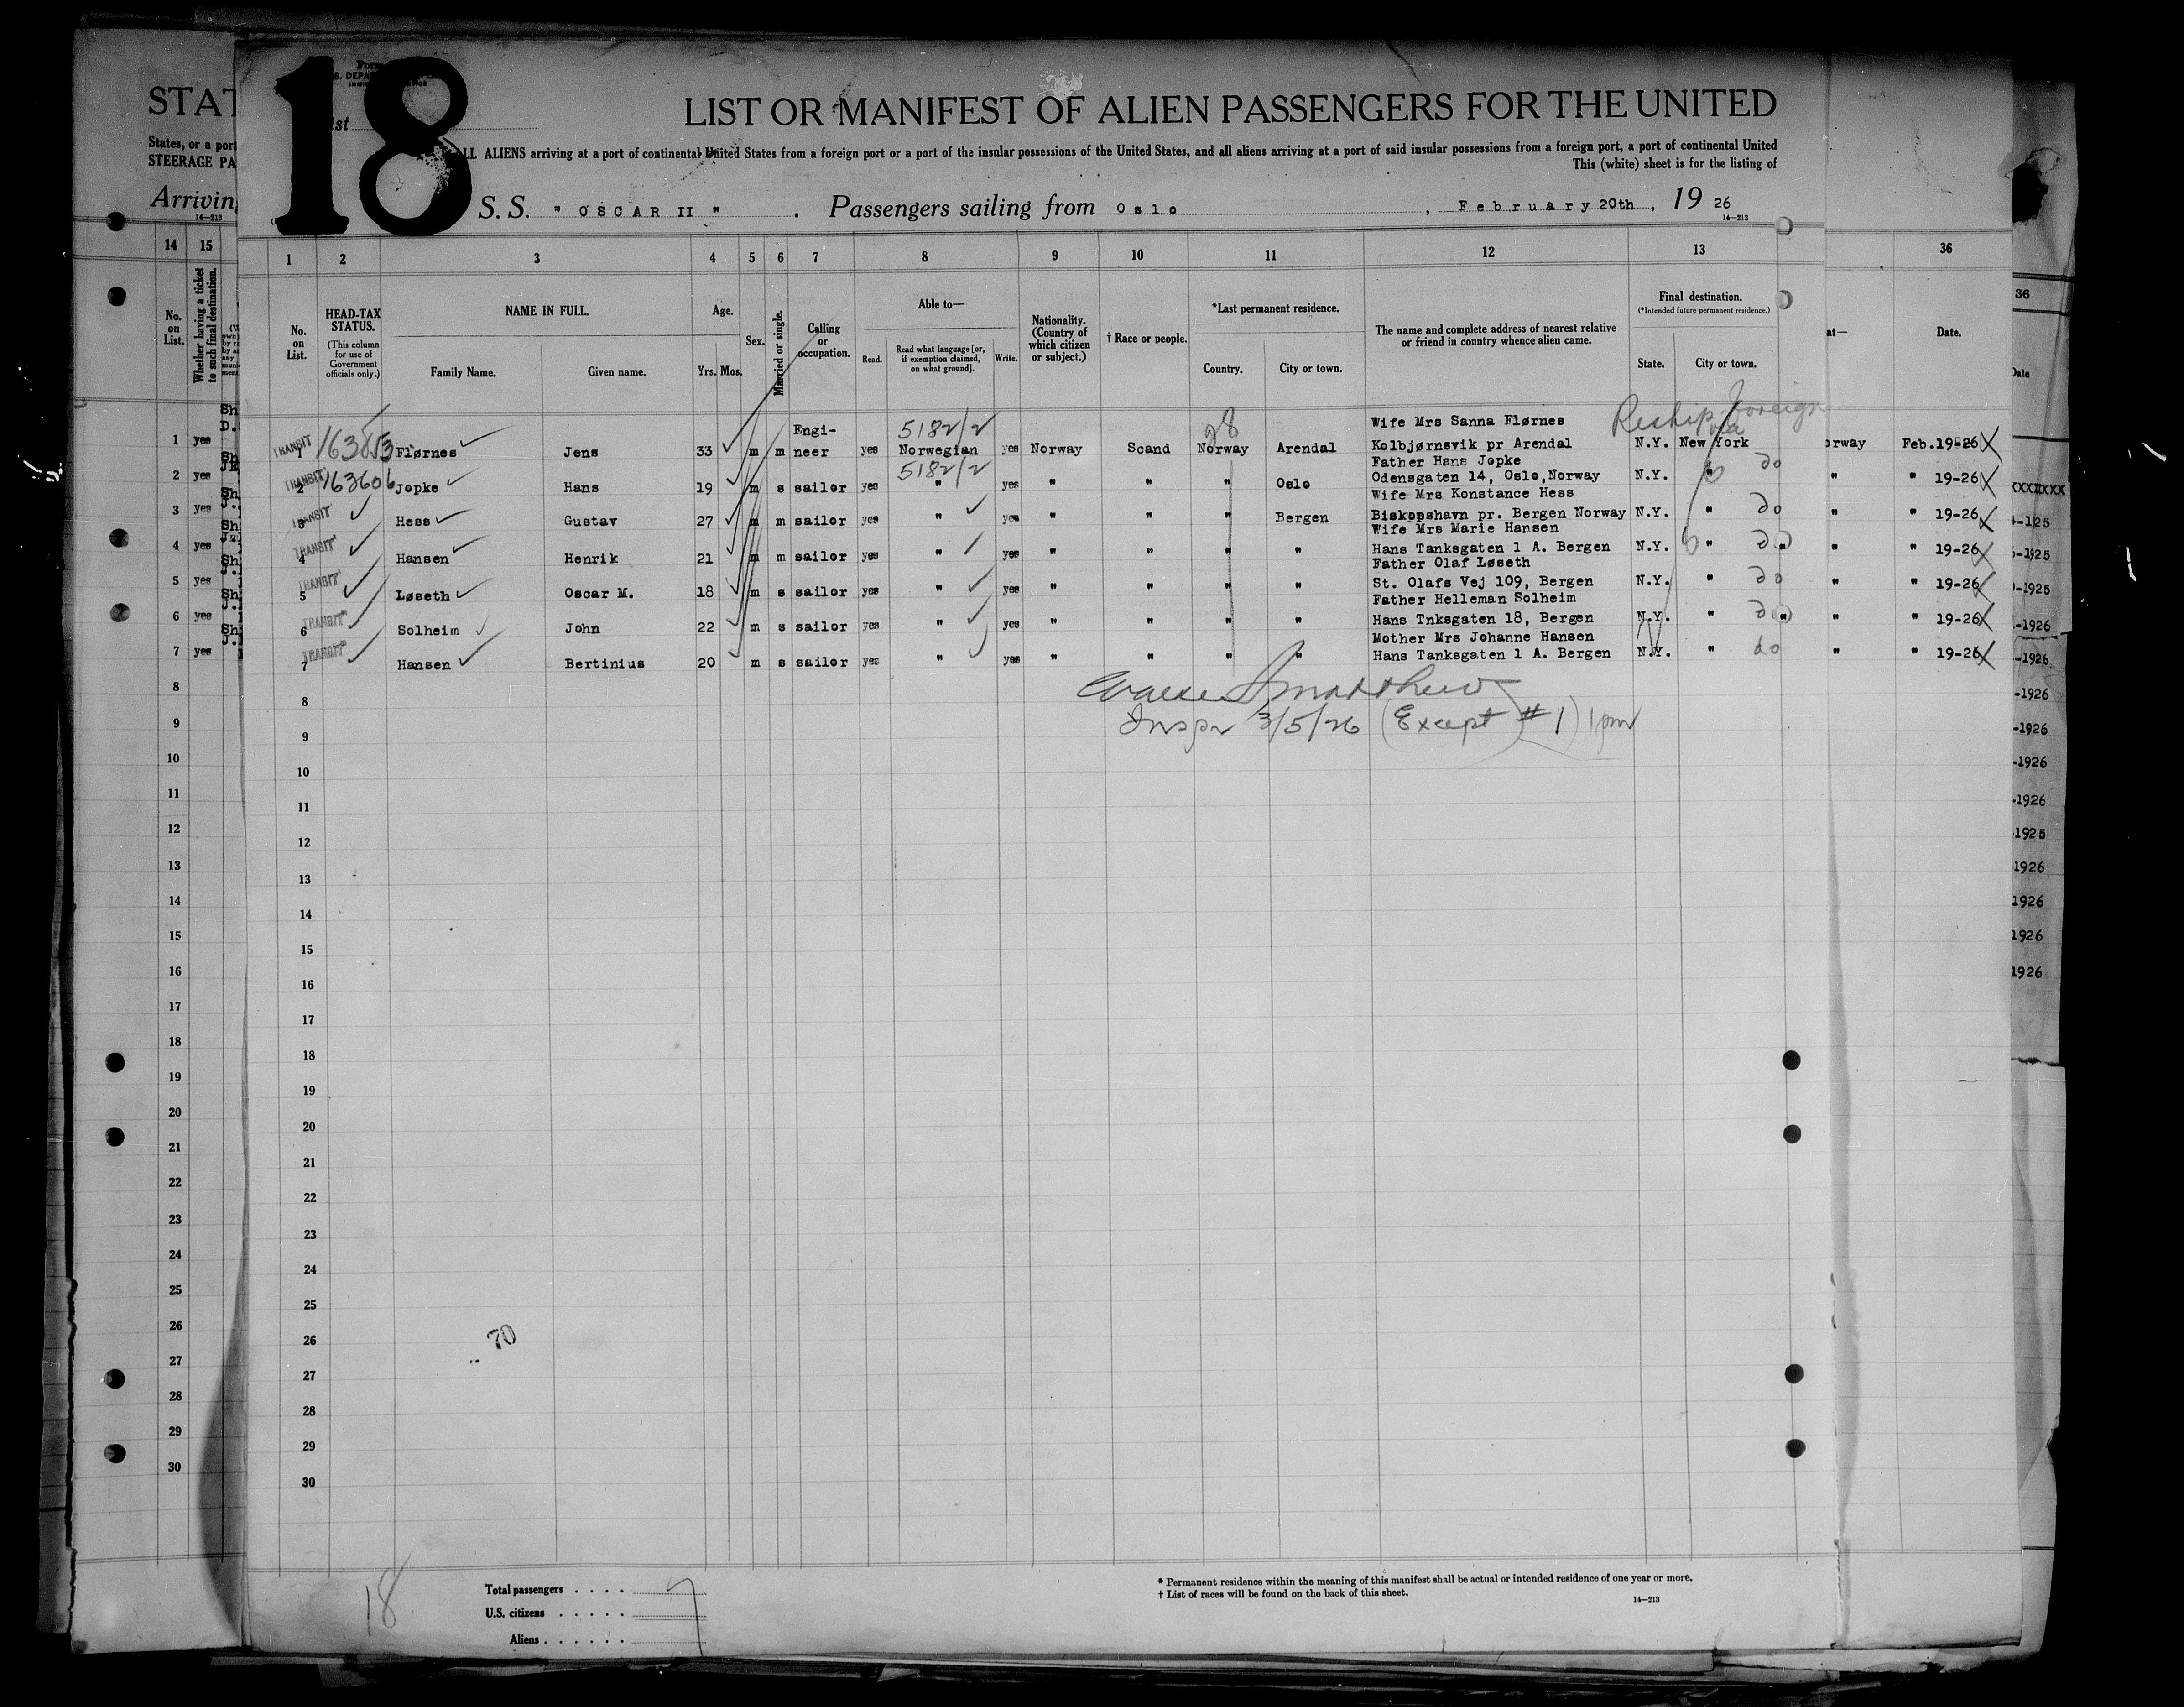 18
Form
S. DEPA
STAT
LIST OR MANIFEST OF ALIEN PASSENGERS FOR THE UNITED
ist
States, or a port
STEERAGE PA
ALL ALIENS arriving at a port of continental United States from a foreign port or a port of the insular possessions of the United States, and all aliens arriving at a port of said insular possessions from a foreign port, a port of continental United
This (white) sheet is for the listing of
Arriving
14—213
S. S. " OSCAR II " . Passengers sailing from Oslo , February 20th , 19 26
14—213
14 15 1 2 3 4 5 6 7 8 9 10 11 12 13 36
36
No. on List. Whether having a ticket to such final destination.
No. on List. HEAD-TAX STATUS. (This column for use of Government officials only.) NAME IN FULL. Family Name. Given name. Age. Yrs. Mos. Sex. Married or single. Calling or occupation. Able to— Read. Read what language [or, if exemption claimed, on what ground]. Write. Nationality. (Country of which citizen or subject.) † Race or people. *Last permanent residence. Country. City or town. The name and complete address of nearest relative or friend in country whence alien came. Final destination. (*Intended future permanent residence.) State. City or town. at— Date.
Date
Reship foreign
via
Engi- 5182/2 28 Wife Mrs Sanna Flørnes
1 yes TRANSIT 1 Flørnes Jens 33 m m neer yes Norwegian yes Norway Scand Norway Arendal Kolbjørnsvik pr Arendal N.Y. New York orway Feb.19-26
5182/2 Father Hans Jopke
2 yes TRANSIT 2 163606 Jopke Hans 19 m s sailor yes " yes " " " Oslo Odensgaten 14, Oslo,Norway N.Y. " do " " 19-26
Wife Mrs Konstance Hess
3 yes TRANSIT 3 Hess Gustav 27 m m sailor yes " yes " " " Bergen Biskopshavn pr. Bergen Norway N.Y. " do " " 19-26
Wife Mrs Marie Hansen
4 yes TRANSIT 4 Hansen Henrik 21 m m sailor yes " yes " " " " Hans Tanksgaten 1 A. Bergen N.Y. " do " " 19-26
Father Olaf Løseth
5 yes TRANSIT 5 Løseth Oscar M. 18 m s sailor yes " yes " " " " St. Olafs Vej 109, Bergen N.Y. " do " " 19-26
Father Helleman Solheim
6 yes TRANSIT 6 Solheim John 22 m s sailor yes " yes " " " " Hans Tnksgaten 18, Bergen N.Y. " do " " 19-26
Mother Mrs Johanne Hansen
7 yes TRANSIT 7 Hansen Bertinius 20 m s sailor yes " yes " " " " Hans Tanksgaten 1 A. Bergen N.Y. " do " " 19-26
8 8
Inspr 3/5/26 (Except #1) 1pm
9 9
10 10
11 11
12 12
13 13
14 14
15 15
16 16
17 17
18 18
19 19
20 20
21 21
22 22
23 23
24 24
25 25
26 26
70
27 27
28 28
29 29
30 30
18
Total passengers . . . . 7
U.S. citizens . . . . .
Aliens . . . . . .
* Permanent residence within the meaning of this manifest shall be actual or intended residence of one year or more.
† List of races will be found on the back of this sheet.
14—213